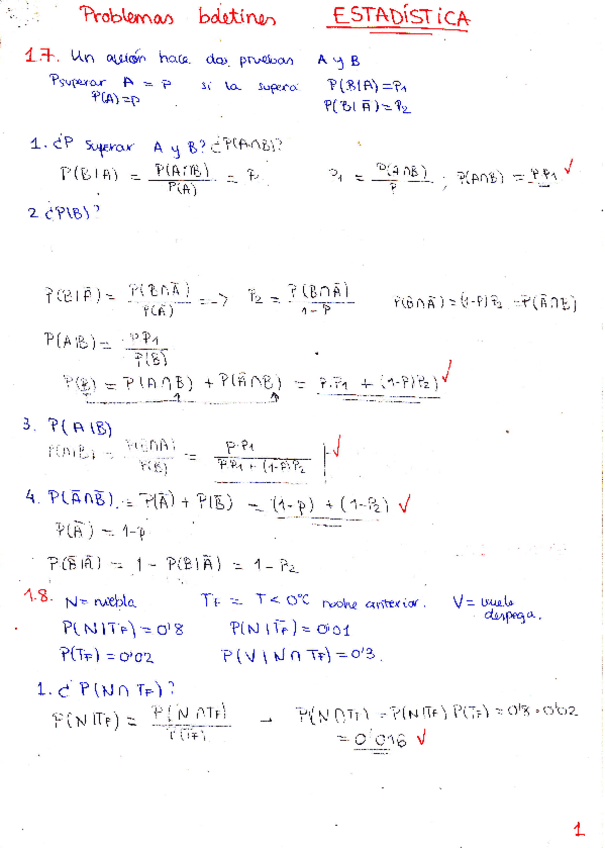 Problemas boletines ESTADÍSTICA
1.7. Un avión hace dos pruebas A y B
Psuperar A = p si la supera P(B|A)=P1
P(A)=p P(B|Ā)=P2
1. ¿P superar A y B? ¿P(A∩B)?
P(B|A) = P(A∩B) / P(A) = P1 P1 = P(A∩B) / P ; P(A∩B) = P P1 ✓
2 ¿P(B)?
P(B|Ā) = P(B∩Ā) / P(Ā) = --> P2 = P(B∩Ā) / 1-P P(B∩Ā)=(1-P)P2 =P(Ā∩B)
P(A|B) = P P1 / P(B)
P(B) = P(A∩B) + P(Ā∩B) = P.P1 + (1-P)P2) ✓
3. P(A|B)
P(A|B) = P(B∩A) / P(B) = P.P1 / P.P1 + (1-P)P2 ✓
4. P(Ā∩B̄) = P(Ā) + P(B̄) = (1-p) + (1-P2) ✓
P(Ā) = 1-p
P(B̄|Ā) = 1 - P(B|Ā) = 1 - P2
1.8. N= niebla TF = T < 0°C noche anterior. V= vuelo despega.
P(N|TF) = 0'8 P(N|T̄F) = 0'01
P(TF) = 0'02 P(V|N∩TF) = 0'3.
1. ¿P(N∩TF)?
P(N|TF) = P(N∩TF) / P(TF) → P(N∩TF) = P(N|TF) P(TF) = 0'8 · 0'02
= 0'016 ✓
1